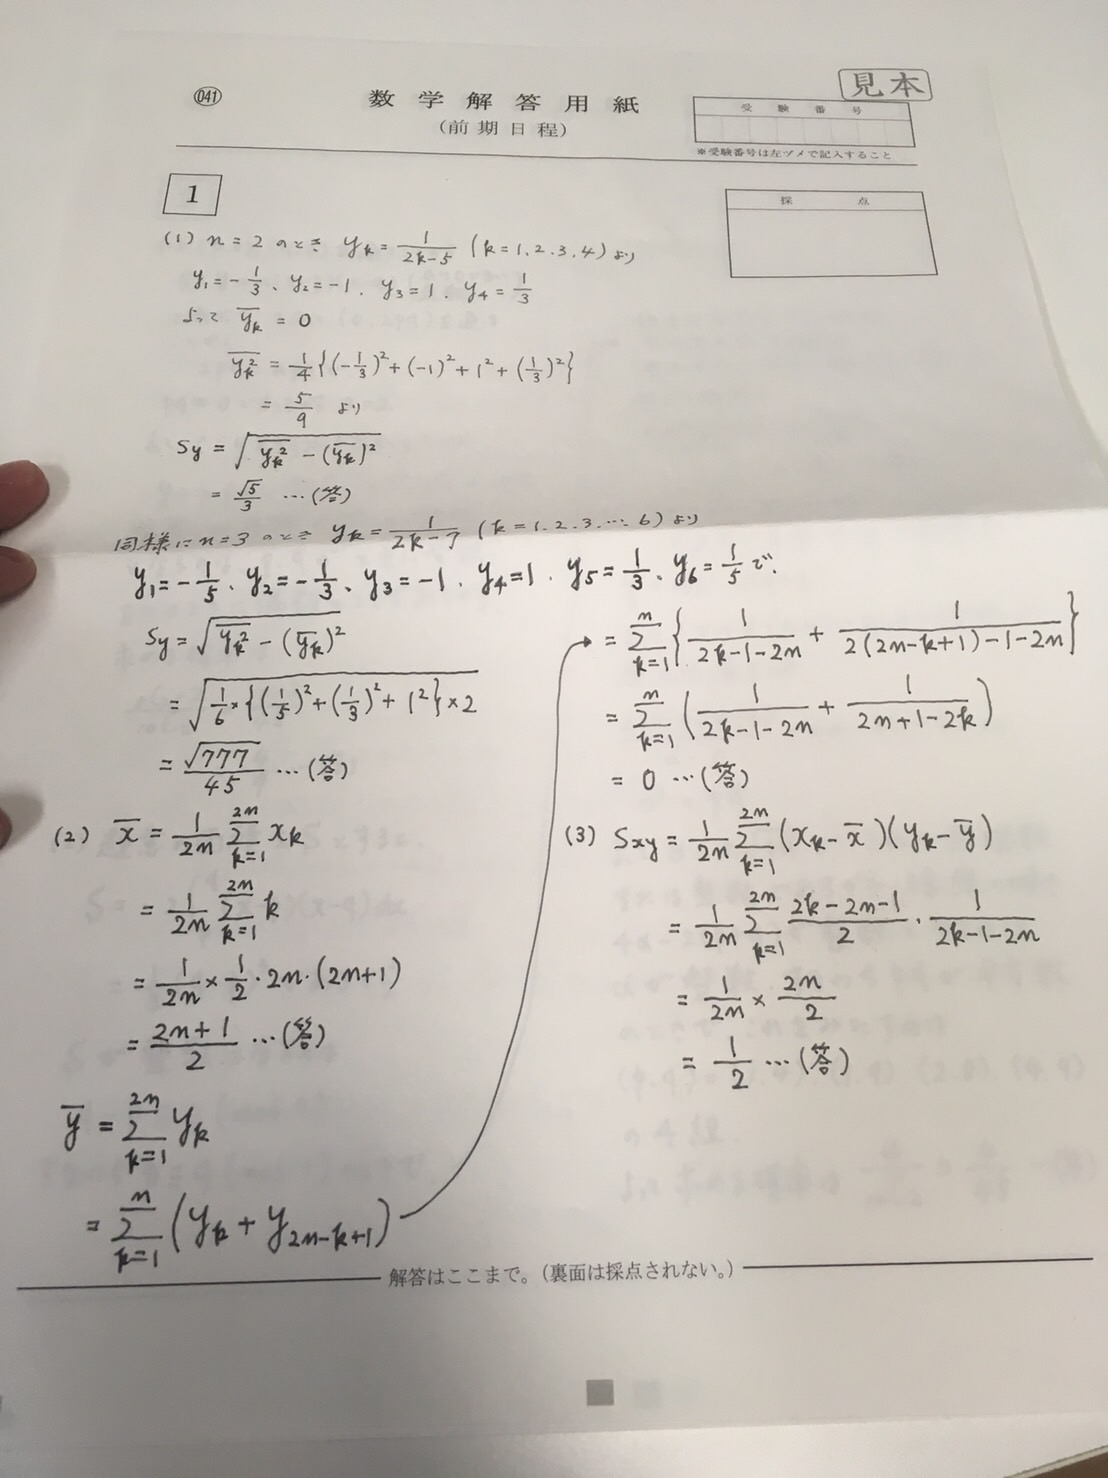 041
数学解答用紙
(前期日程)
見本
受験番号
※受験番号は左ヅメで記入すること
採点
1
(1) n=2のとき y_k = 1/(2k-5) (k=1.2.3.4)より
y_1=-1/3、y_2=-1、y_3=1、y_4=1/3
よって \overline{y_k} = 0
\overline{y_k^2} = 1/4{(-1/3)^2+(-1)^2+1^2+(1/3)^2}
= 5/9 より
Sy = √(\overline{y_k^2} - (\overline{y_k})^2)
= √5/3 …(答)
同様にn=3のとき y_k = 1/(2k-7) (k=1.2.3.….6)より
y_1=-1/5、y_2=-1/3、y_3=-1、y_4=1、y_5=1/3、y_6=1/5で、
Sy = √(\overline{y_k^2} - (\overline{y_k})^2)
= √(1/6×{(1/5)^2+(1/3)^2+1^2}×2)
= √777/45 …(答)
(2) \overline{x} = 1/2n Σ_{k=1}^{2n} x_k
= 1/2n Σ_{k=1}^{2n} k
= 1/2n × 1/2・2n・(2n+1)
= (2n+1)/2 …(答)
\overline{y} = Σ_{k=1}^{2n} y_k
= Σ_{k=1}^{n} (y_k + y_{2n-k+1})
= Σ_{k=1}^{n} {1/(2k-1-2n) + 1/(2(2n-k+1)-1-2n)}
= Σ_{k=1}^{n} (1/(2k-1-2n) + 1/(2n+1-2k))
= 0 …(答)
(3) Sxy = 1/2n Σ_{k=1}^{2n} (x_k-\overline{x})(y_k-\overline{y})
= 1/2n Σ_{k=1}^{2n} (2k-2n-1)/2・1/(2k-1-2n)
= 1/2n × 2n/2
= 1/2 …(答)
解答はここまで。(裏面は採点されない。)